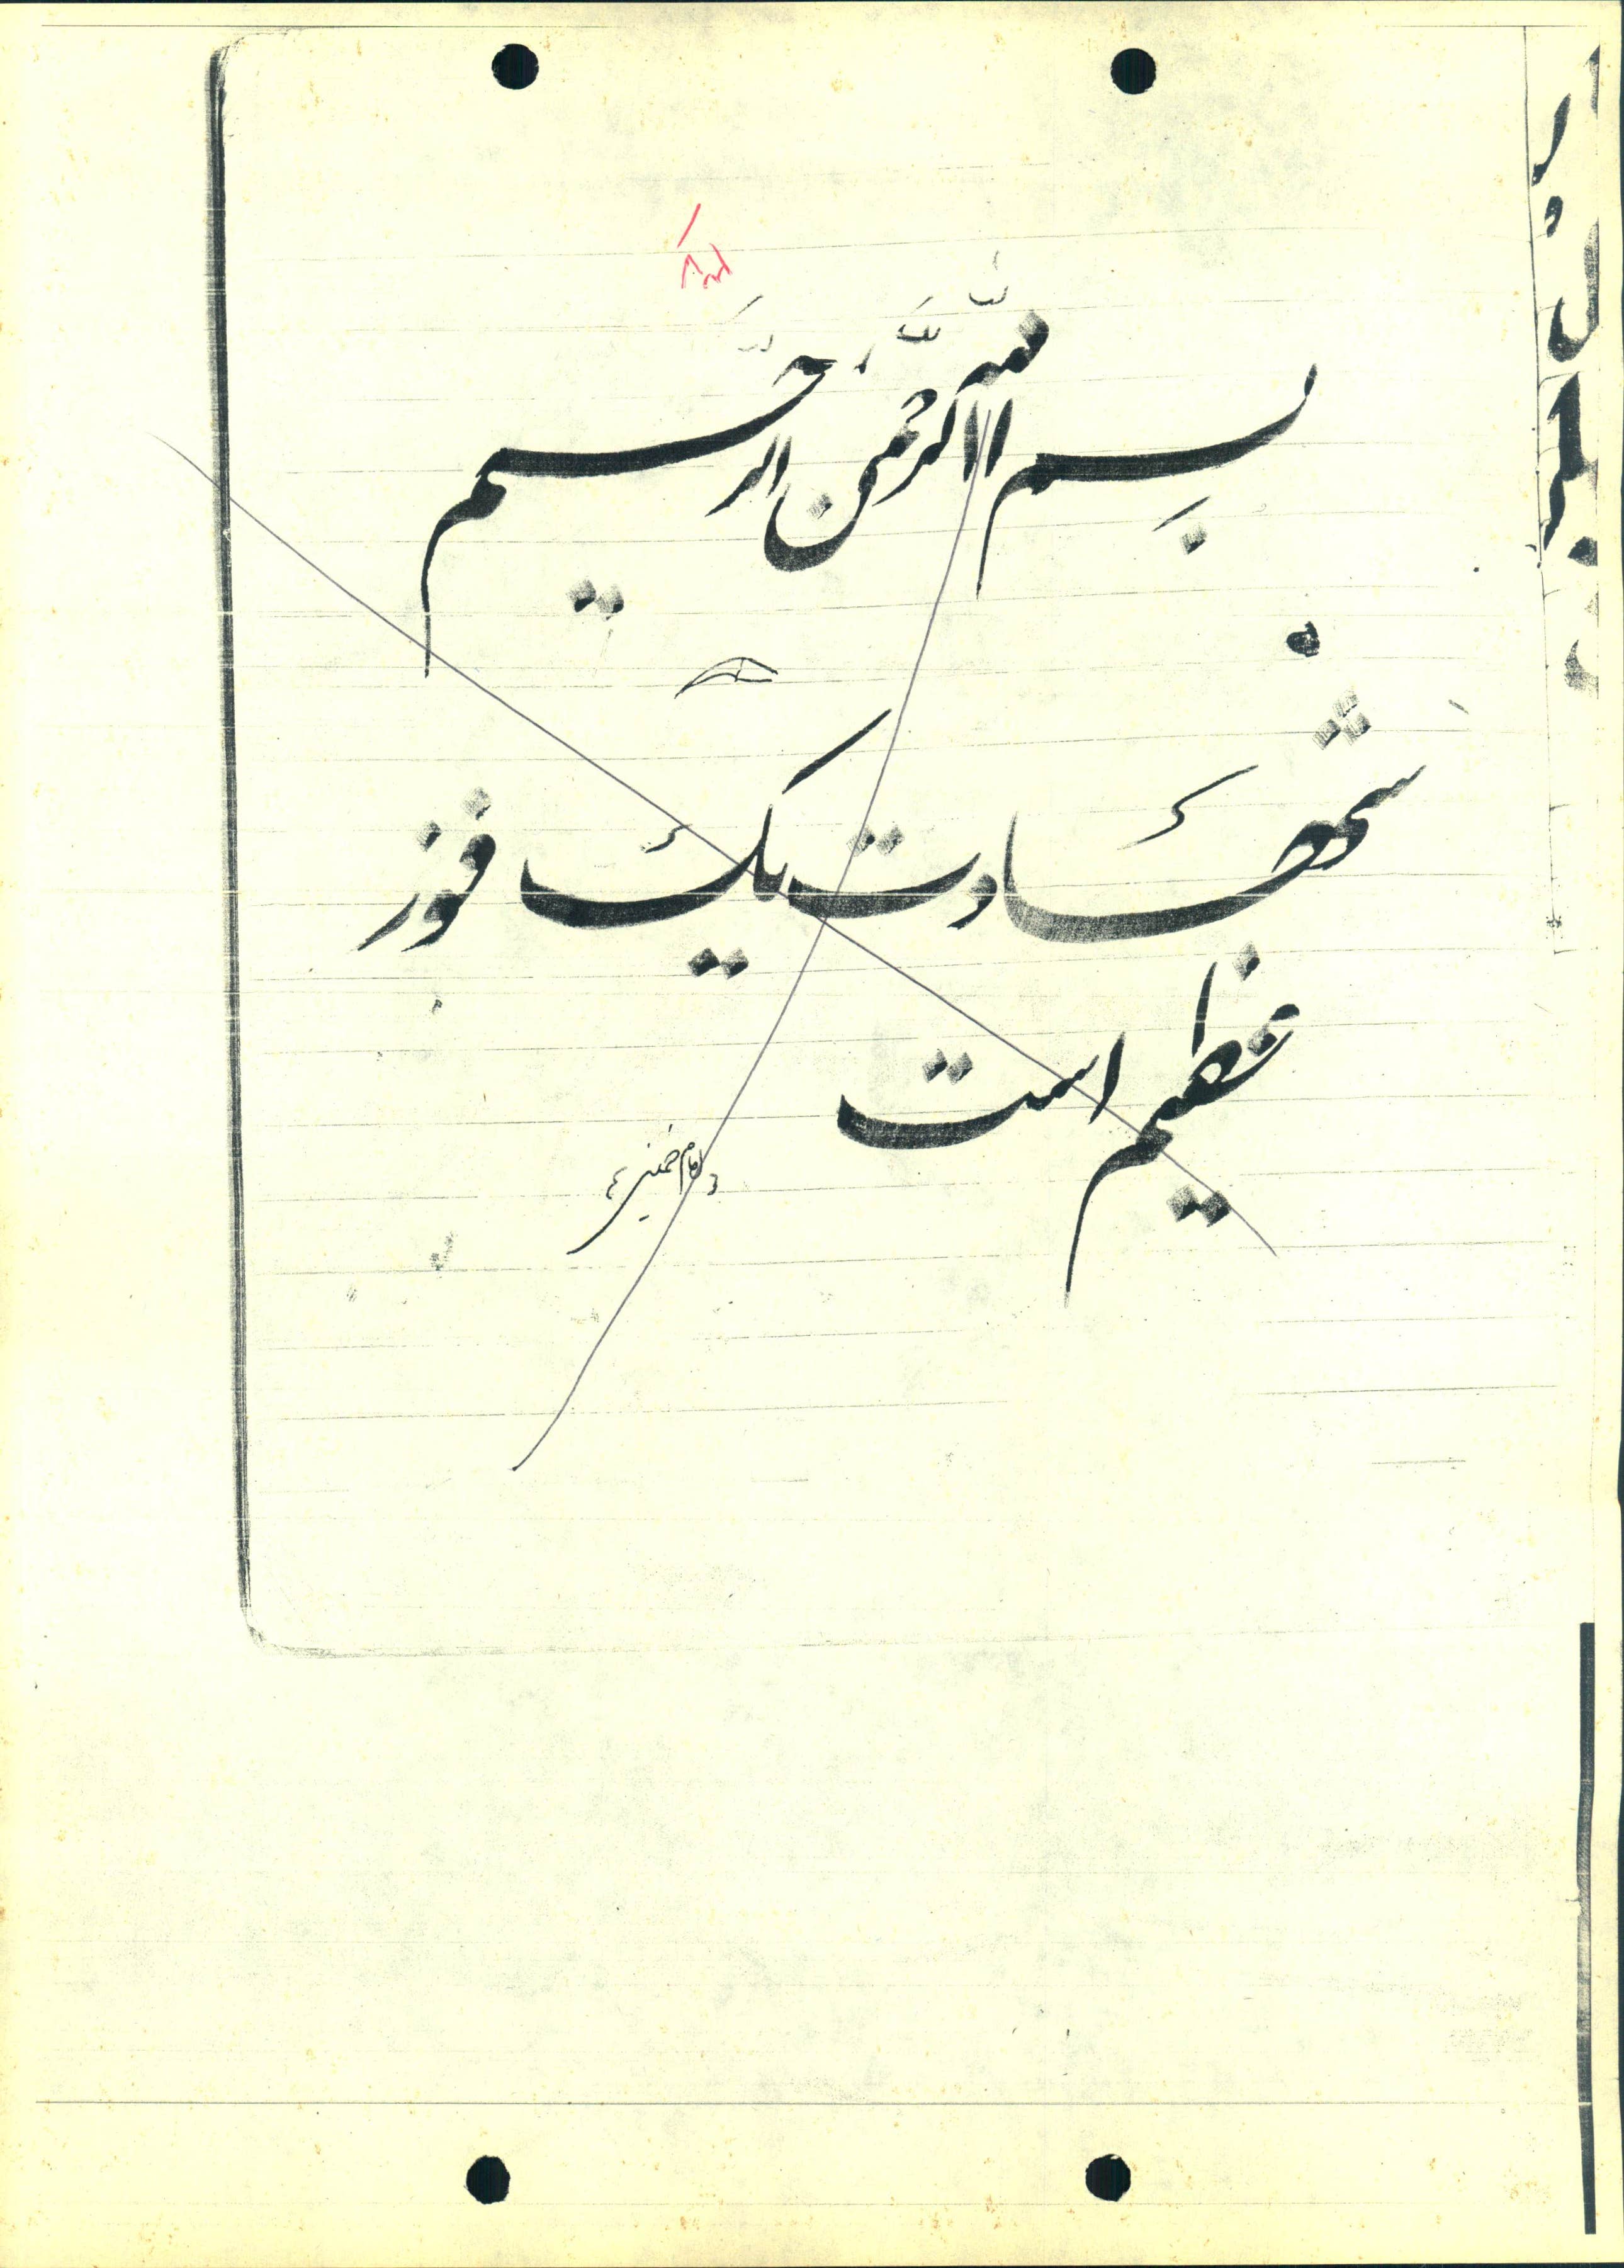 بِسم الله الرَّحمن الرَّحیم
شهادت یک فوز
عظیم است
«امام خمینی»